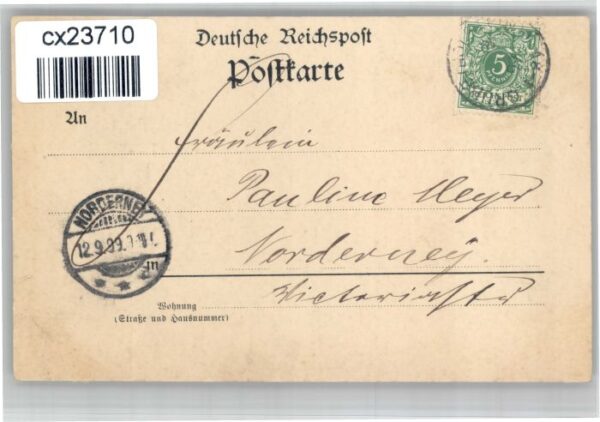 cx23710
Deutsche Reichspost
Postkarte
5
An
Fräulein
Pauline Meyer
NORDERNEY
12.9.99.
Norderney.
Victoriastr
Wohnung
(Straße und Hausnummer)